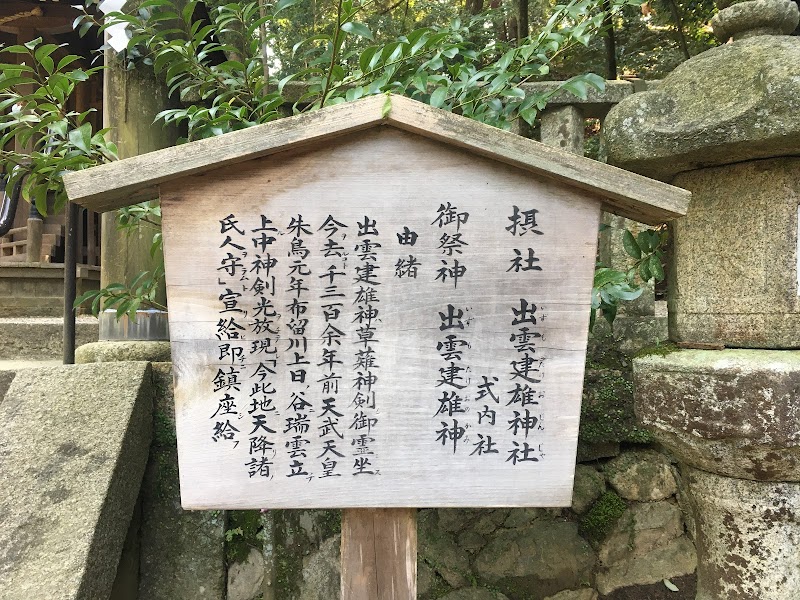 摂社 出雲建雄神社
式内社
御祭神 出雲建雄神
由緒
出雲建雄神草薙神剣御霊坐ス
今去ル千三百余年前天武天皇
朱鳥元年布留川上日ノ谷瑞雲立
上中神剣光放現「今此地ニ天降諸ノ
氏人守」宣給即鎮座給フ